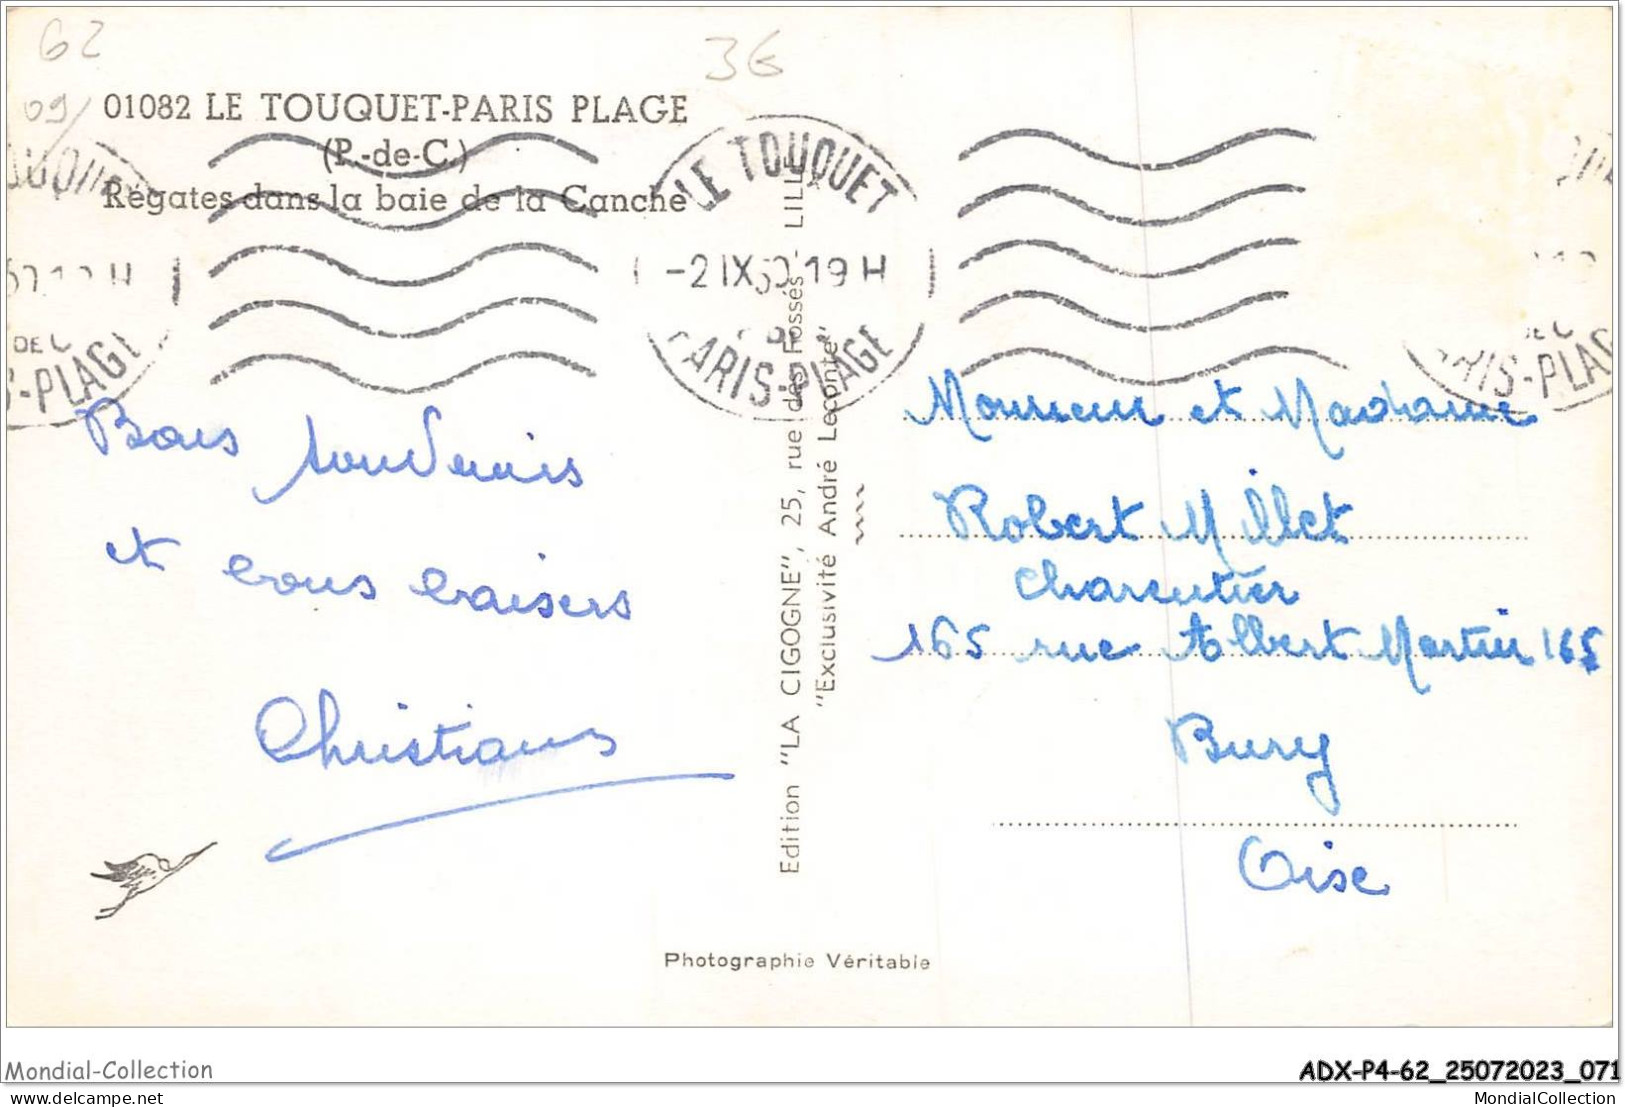 62
36
09/
01082 LE TOUQUET-PARIS PLAGE
(P.-de-C.)
Régates dans la baie de la Canche
LE TOUQUET
-2 IX 60 19 H
PARIS-PLAGE
Bons souvenirs
et bons baisers
Christiane
Edition "LA CIGOGNE", 25, rue des Fossés - LILLE
"Exclusivité André Leconte"
Monsieur et Madame
Robert Millet
Charcutier
165 rue Albert Martin 165
Bury
Oise
Photographie Véritable
Mondial-Collection
ADX-P4-62_25072023_071
delcampe.net
MondialCollection